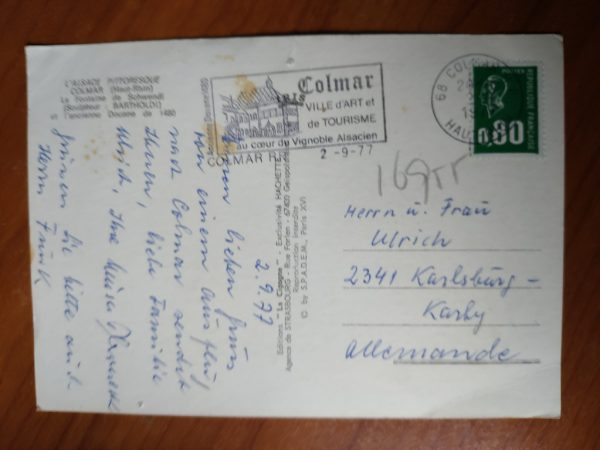 L'ALSACE PITTORESQUE
COLMAR (Haut-Rhin)
La Fontaine de Schwendi
(Sculpteur : BARTHOLDI)
et l'ancienne Douane de 1480
Colmar
VILLE d'ART et
de TOURISME
au cœur du Vignoble Alsacien
COLMAR R.P.
2-9-77
68 COLMAR
POSTES
REPUBLIQUE FRANCAISE
0,80
2.9.77
lieben Gruß
von einem Ausflug
nach Colmar sendet
Ihnen, liebe Familie
Ulrich, Ihre Luisa
Grüßen Sie bitte auch
Herrn
Editions "La Cigogne" - Exclusivité HACHETTE
Agence de STRASBOURG - Rue Forlen - 67400 Geispolsheim
Reproduction Interdite
© by S.P.A.D.E.M., Paris XVI
Herrn u. Frau
Ulrich
2341 Karlsburg-
Karby
Allemande